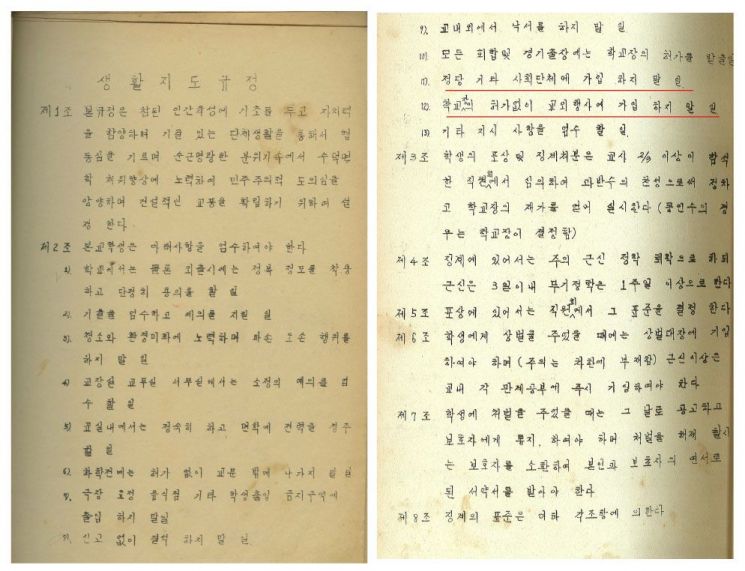 생활지도규정
제1조 본규정은 참된 인간육성에 기초를 두고 자치력
을 함양하며 기율 있는 단체생활을 통해서 협
동심을 기르며 순근명랑한 분위기속에서 수덕면
학 하며 향상에 노력하여 민주주의적 도의심을
앙양하여 건설적인 교풍을 확립하기 위하여 설
정 한다
제2조 본교학생은 아래사항을 엄수하여야 한다
1) 학교에서는 물론 외출시에는 정복 정모를 착용
하고 단정히 용의를 할 일
2) 기율을 엄수하고 예의를 지킬 일
3) 청소와 환경미화에 노력하며 파손 오손 행위를
하지 말 일
4) 교장실 교무실 서무실에서는 소정의 예의를 엄
수 할 일
5) 교실내에서는 정숙히 하고 면학에 전력을 경주
할 일
6) 하학전에는 허가 없이 교문 밖에 나가지 말 일
7) 극장 요정 음식점 기타 학생출입 금지구역에
출입 하지 말일
8) 신고 없이 결석 하지 말 일
9) 교내외에서 낙서를 하지 말 일
10) 모든 회합및 경기출장에는 학교장의 허가를 받을일
11) 정당 기타 사회단체에 가입 하지 말 일
12) 학교장의 허가없이 교외행사에 가입 하지 말 일
13) 기타 지시 사항을 엄수 할 일
제3조 학생의 포상및 징계처분은 교사 2/3 이상이 참석
한 직원회에서 심의하여 과반수의 찬성으로써 정하
고 학교장의 재가를 얻어 실시한다 (동인수의 경
우는 학교장이 결정함)
제4조 징계에 있어서는 주의 근신 정학 퇴학으로 하되
근신은 3일이내 무기정학은 1주일 이상으로 한다
제5조 포상에 있어서는 직원회에서 그 표준을 결정 한다
제6조 학생에게 상벌을 주었을 때에는 상벌대장에 기입
하여야 하며 (주의는 차한에 부재함) 근신이상은
교내 각 관계공부에 즉시 기입하여야 한다
제7조 학생에 처벌을 주었을 때는 그 날로 공고하고
보호자에게 통지, 하여야 하며 처벌을 해제 할시
는 보호자를 소환하여 본인과 보호자의 연서로
된 서약서를 받아야 한다
제8조 징계의 표준은 더하 각조항에 의한다